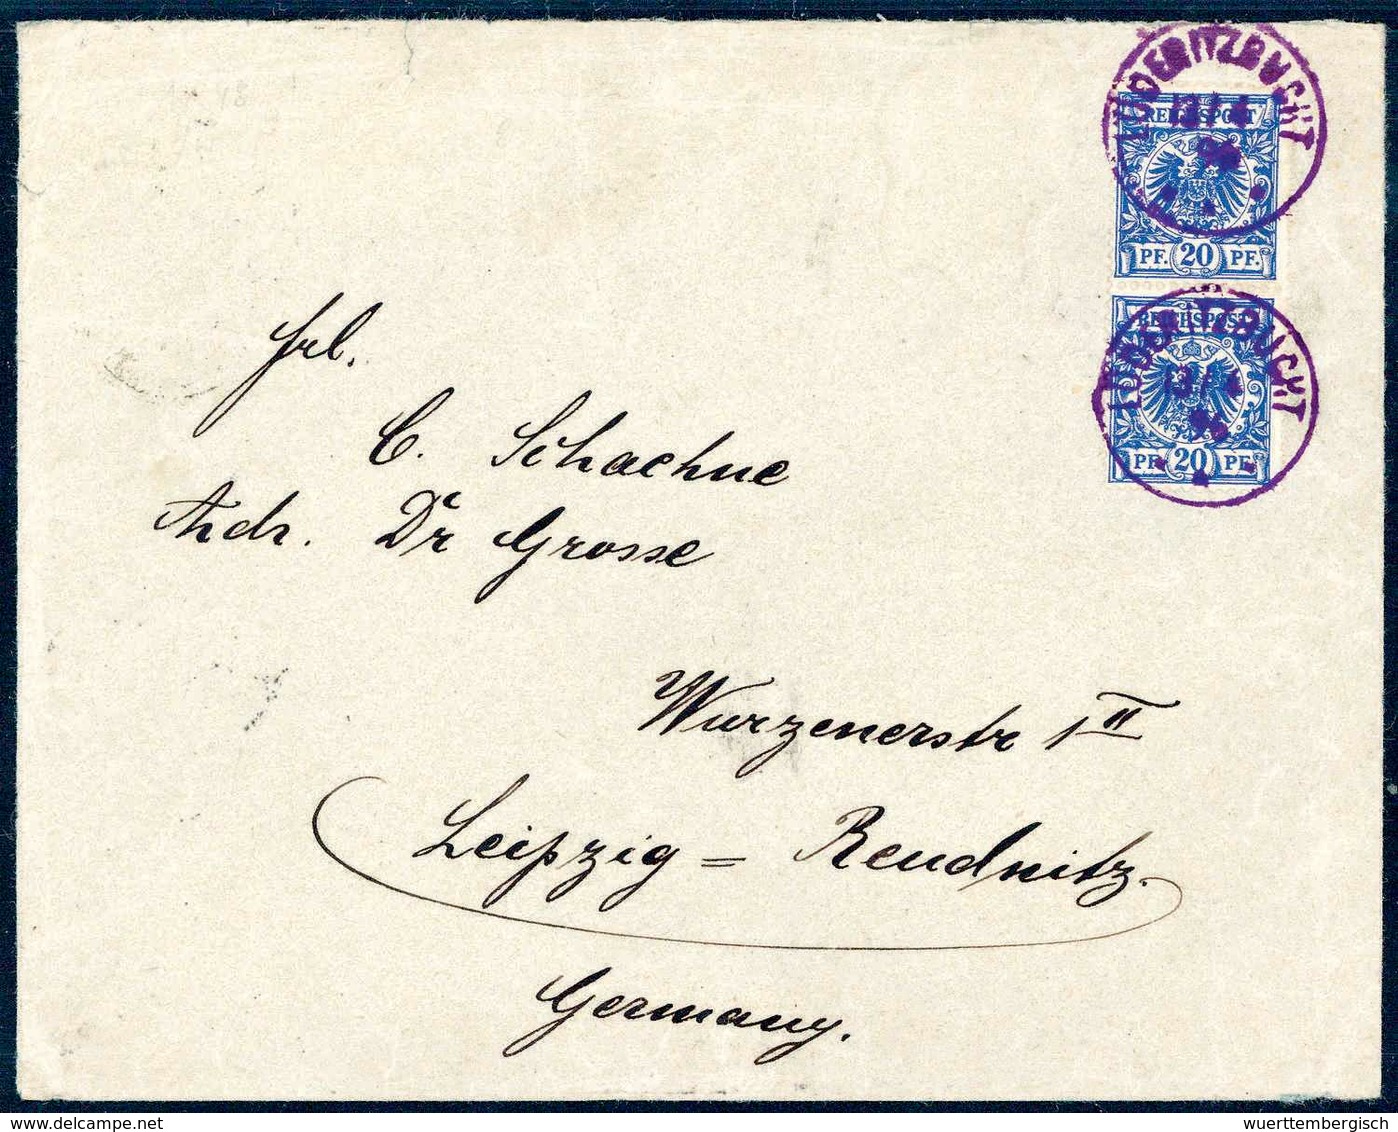 LÜDERITZBUCHT
13/4
96
REICHSPOST
PF. 20 PF.
LÜDERITZBUCHT
13/4
96
REICHSPOST
PF. 20 PF.
Frl.
C. Schachne
Adr. Dr Grosse
Wurzenerstr 1 II
Leipzig = Reudnitz.
Germany.
wuerttembergisch